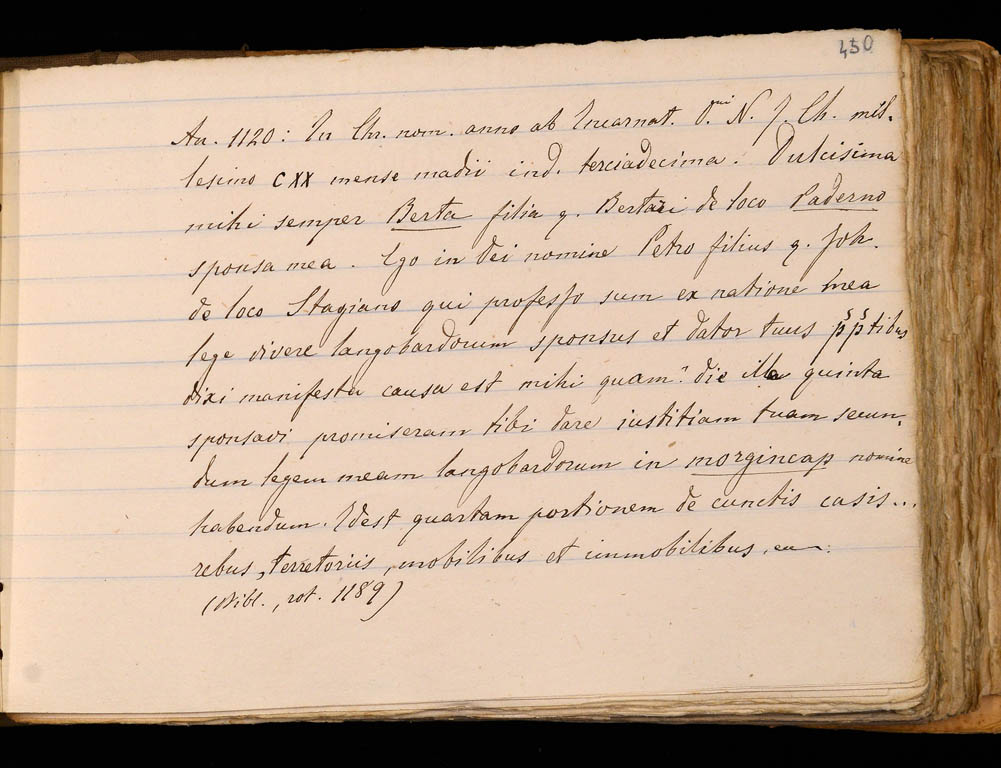 450
An. 1120: In Chr. nom. anno ab Incarnat. D.ni N. J. Ch. mil-
lesimo CXX mense madii ind. terciadecima. Dulcisima
mihi semper Berta filia q. Bertari de loco Paderno
sponsa mea. Ego in dei nomine Petro filius q. Joh.
de loco Stagiano qui professo sum ex natione mea
lege vivere langobardorum sponsus et dator tuus p̄p̄tibus
dixi manifesta causa est mihi quam.r die illa quinta
sponsavi promiseram tibi dare iustitiam tuam secun-
dum legem meam langobardorum in morgincap nomine
habendum. Idest quartam portionem de cunctis casis...
rebus, terretoriis, mobilibus et immobilibus,
(Bibl., rot. 1189)